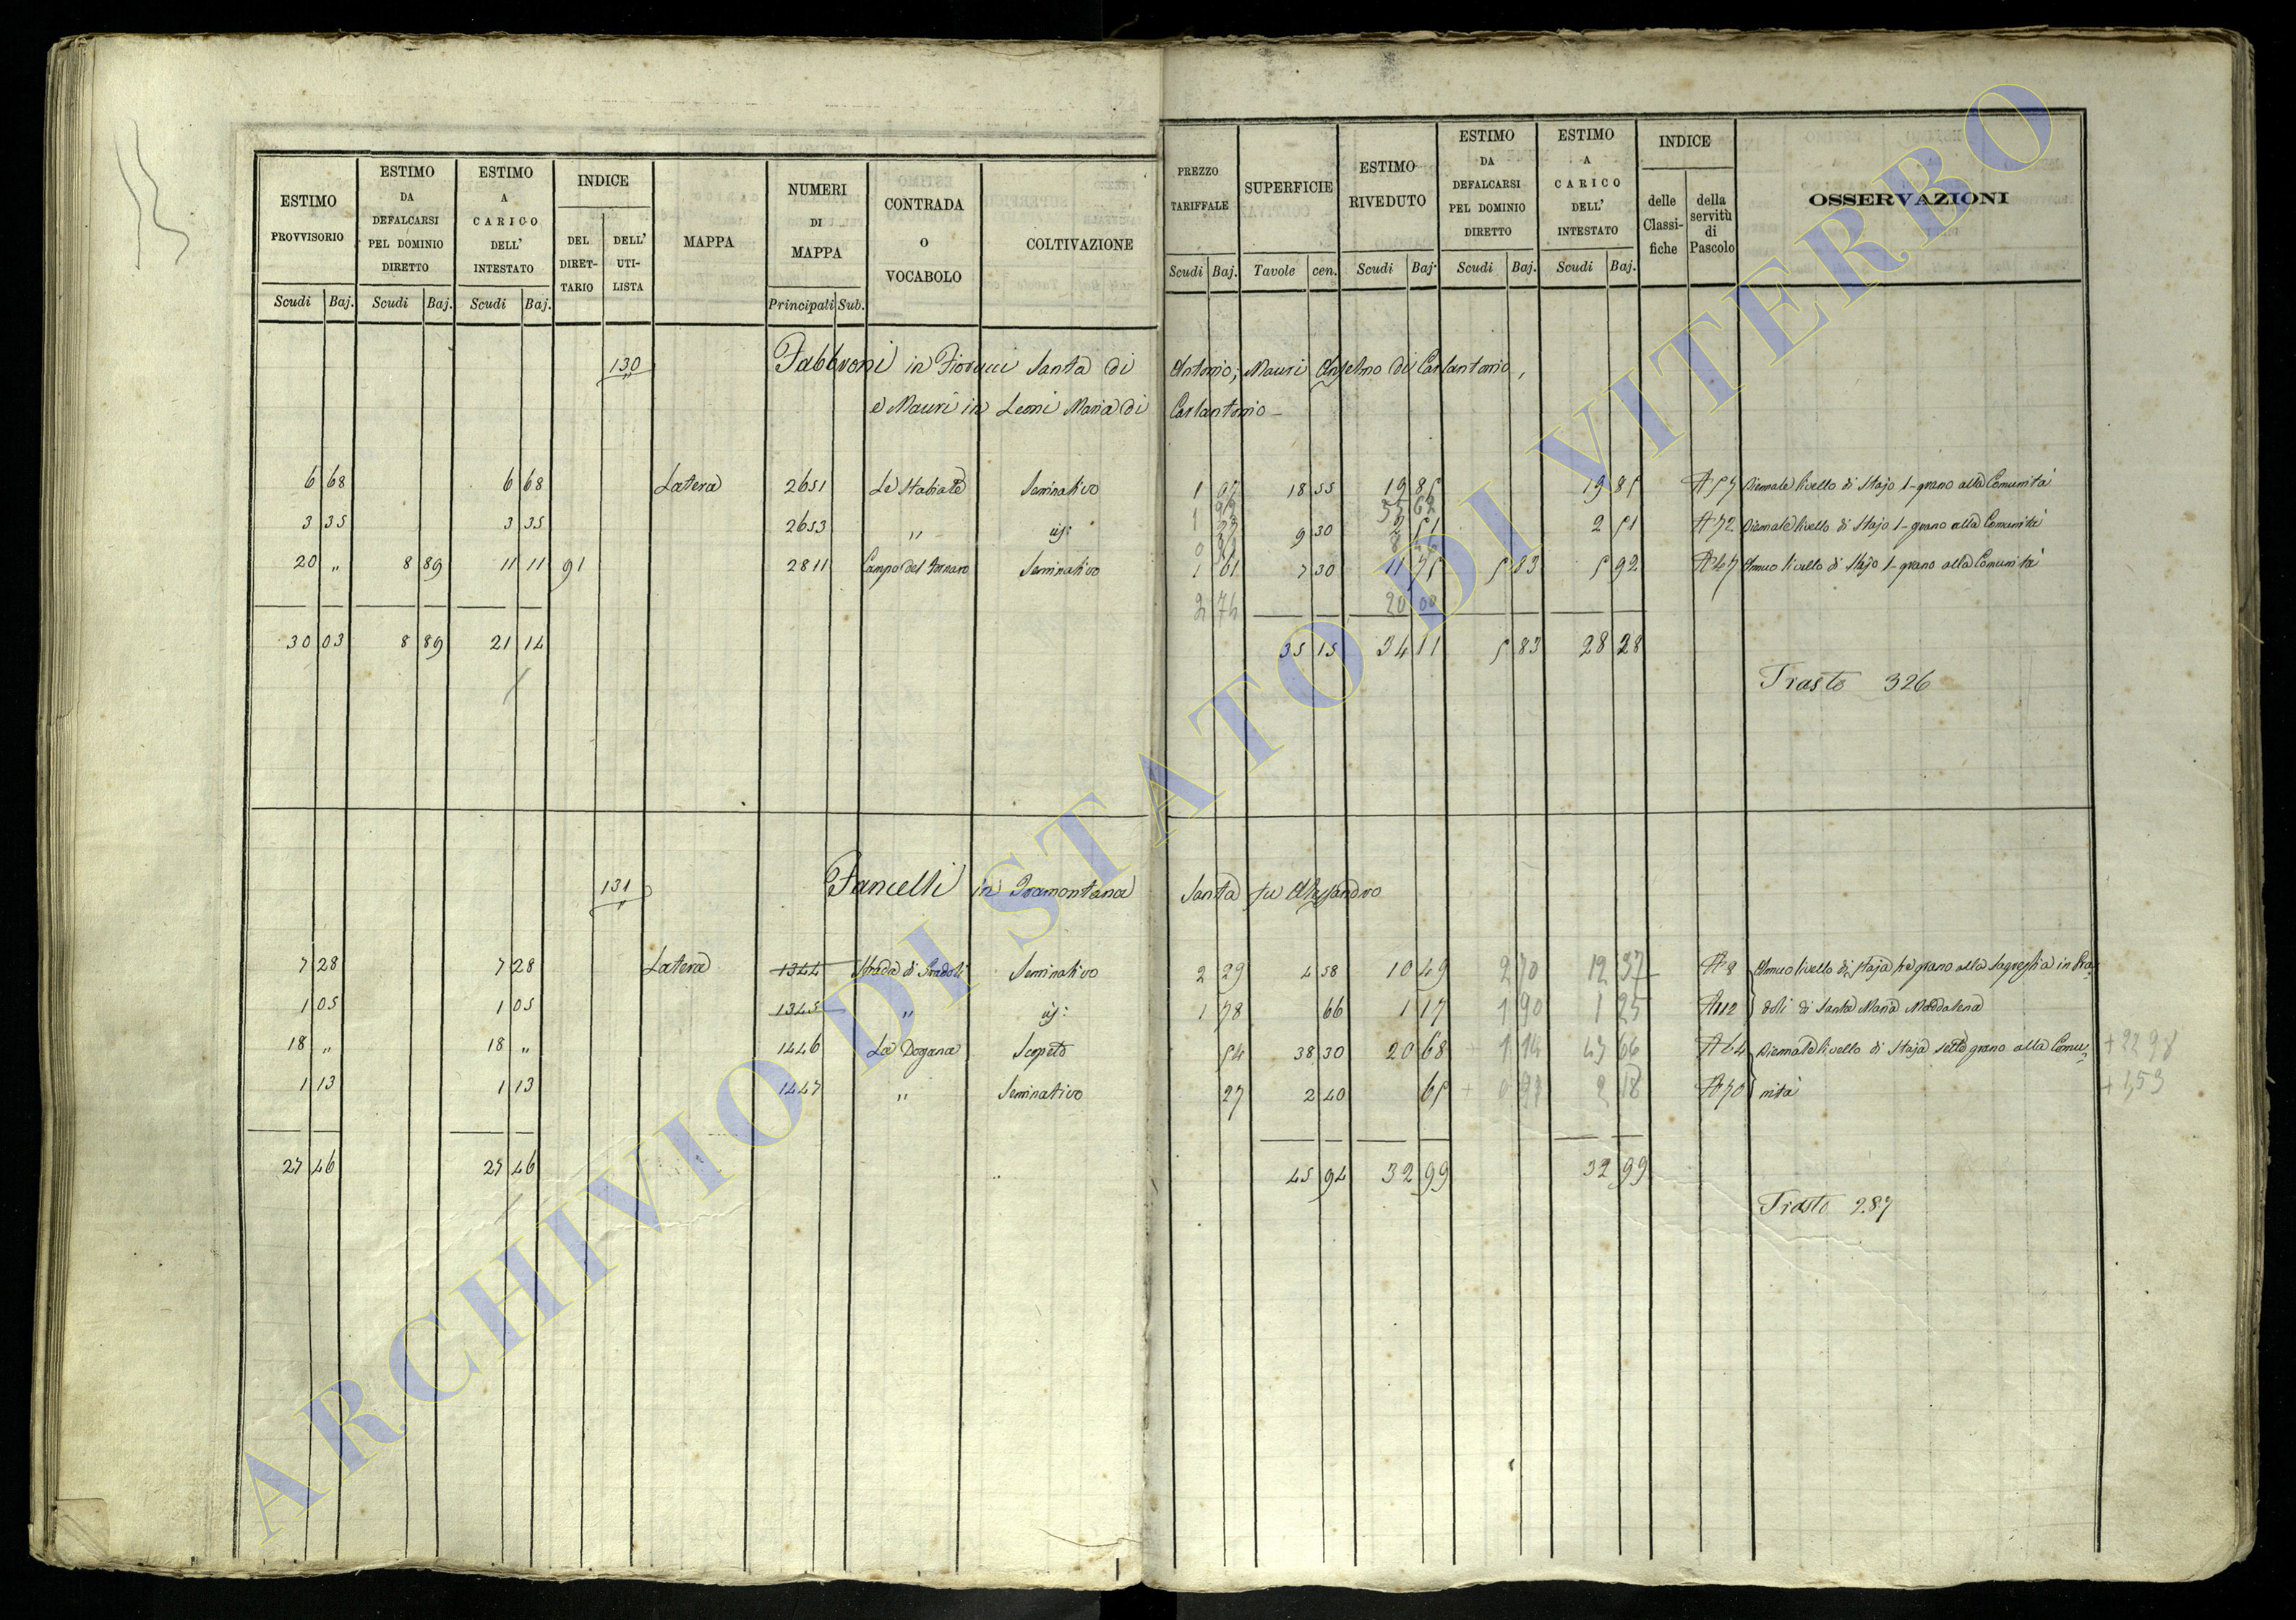 ESTIMO PROVVISORIO Scudi Baj. ESTIMO DA DEFALCARSI PEL DOMINIO DIRETTO Scudi Baj. ESTIMO A CARICO DELL' INTESTATO Scudi Baj. INDICE DEL DIRET- TARIO DELL' UTI- LISTA MAPPA NUMERI DI MAPPA Principali Sub. CONTRADA O VOCABOLO COLTIVAZIONE PREZZO TARIFFALE Scudi Baj. SUPERFICIE Tavole cen. ESTIMO RIVEDUTO Scudi Baj. ESTIMO DA DEFALCARSI PEL DOMINIO DIRETTO Scudi Baj. ESTIMO A CARICO DELL' INTESTATO Scudi Baj. INDICE delle Classi- fiche della servitù di Pascolo OSSERVAZIONI
130 Fabbroni in Fiorucci Santa di Antonio; Mauri Anselmo di Carlantonio,
e Mauri in Leoni Maria di Carlantonio
6 68 6 68 Latera 2651 Le Stabiate Seminativo 1 18 55 19 85 19 85 Biennale livello di Stajo 1 grano alla Comunità
3 35 3 35 2653 " id: 9 30 2 51 2 51 A 72 Biennale livello di Stajo 1 grano alla Comunità
20 " 8 89 11 11 91 2811 Campo del Fornaro Seminativo 1 61 7 30 11 75 5 83 5 92 A 47 Annuo livello di Stajo 1 grano alla Comunità
2 74 20 00
30 03 8 89 21 14 35 15 34 11 5 83 28 28
Trasto 326
131 Fancelli in Tramontana Santa fu Alessandro
7 28 7 28 Latera 1344 Strada di Gradoli Seminativo 2 29 4 58 10 49 2 70 12 37 A 8 Annuo livello di staja tre grano alla Sagrestia in Gra-
1 05 1 05 1345 " id: 1 78 66 1 17 1 90 1 25 A 112 doli di Santa Maria Maddalena
18 " 18 " 1446 La Dogana Scopeto 54 38 30 20 68 + 1 14 43 66 A 64 Biennale livello di Staja sette grano alla Comu- + 22 98
1 13 1 13 1447 " Seminativo 27 2 40 65 + 2 18 A 70 nità + 1,53
27 46 27 46 45 94 32 99 32 99
Trasto 287
ARCHIVIO DI STATO DI VITERBO